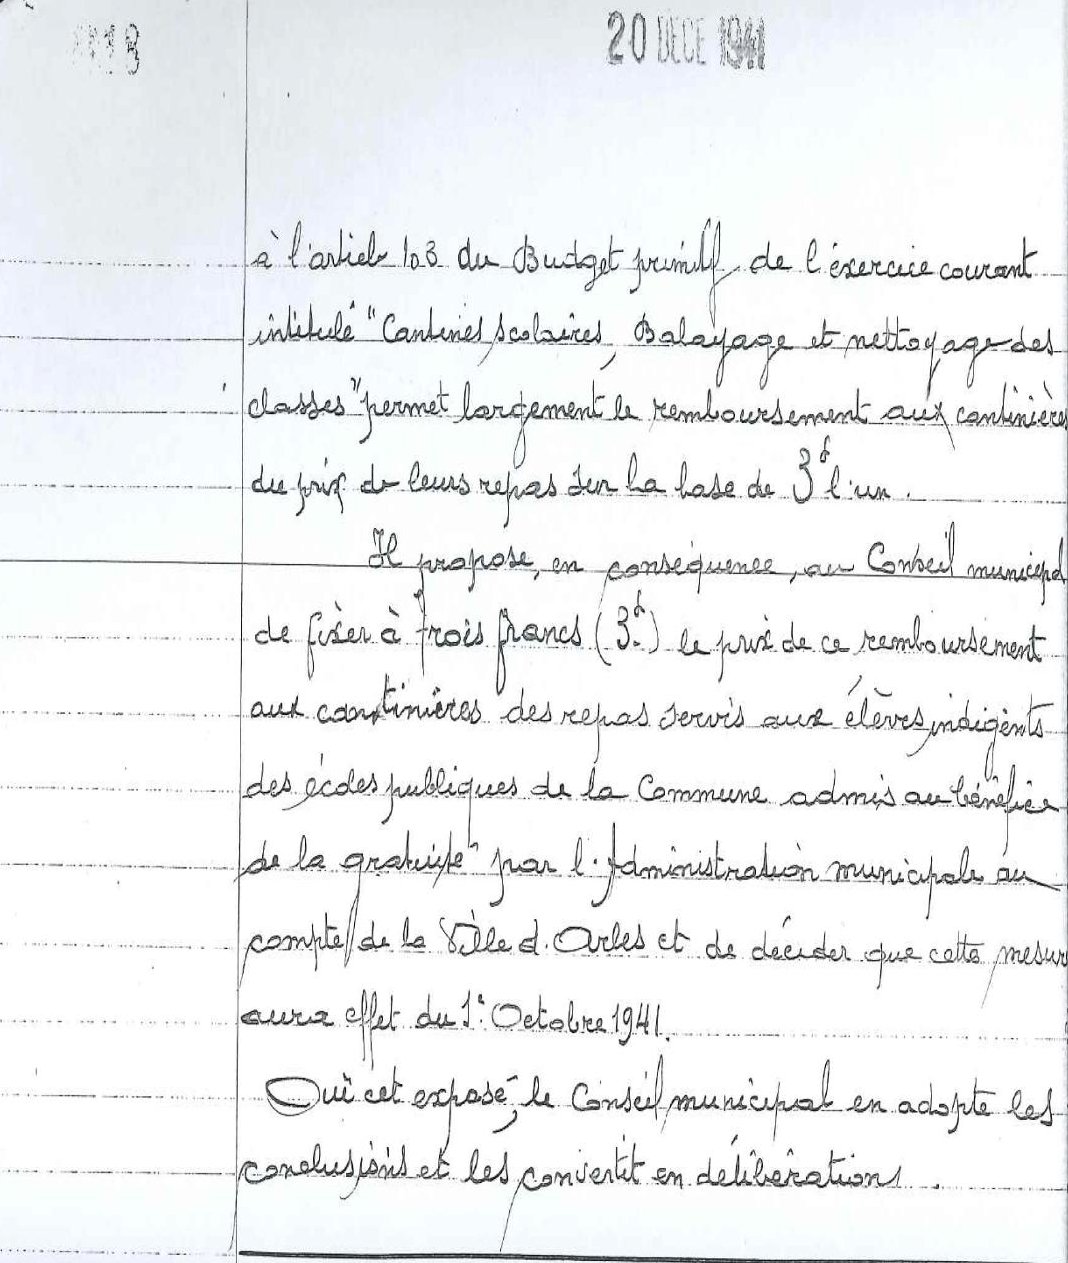 20 DECE 1941
à l'article 103 du Budget primitif, de l'éxercice courant
intitulé "Cantines scolaires, Balayage et nettoyage des
classes" permet largement le remboursement aux cantinières
du prix de leurs repas sur la base de 3f l'un.
Il propose, en conséquence, au Conseil municipal
de fixer à trois francs (3f.) le prix de ce remboursement
aux cantinières des repas servis aux élèves indigents
des écoles publiques de la Commune admis au bénéfice
de la gratuité par l'Administration municipale au
compte de la Ville d'Arles et de décider que cette mesur
aura effet du 1er Octobre 1941.
Ouï cet exposé, le Conseil municipal en adopte les
conclusions et les convertit en délibérations.